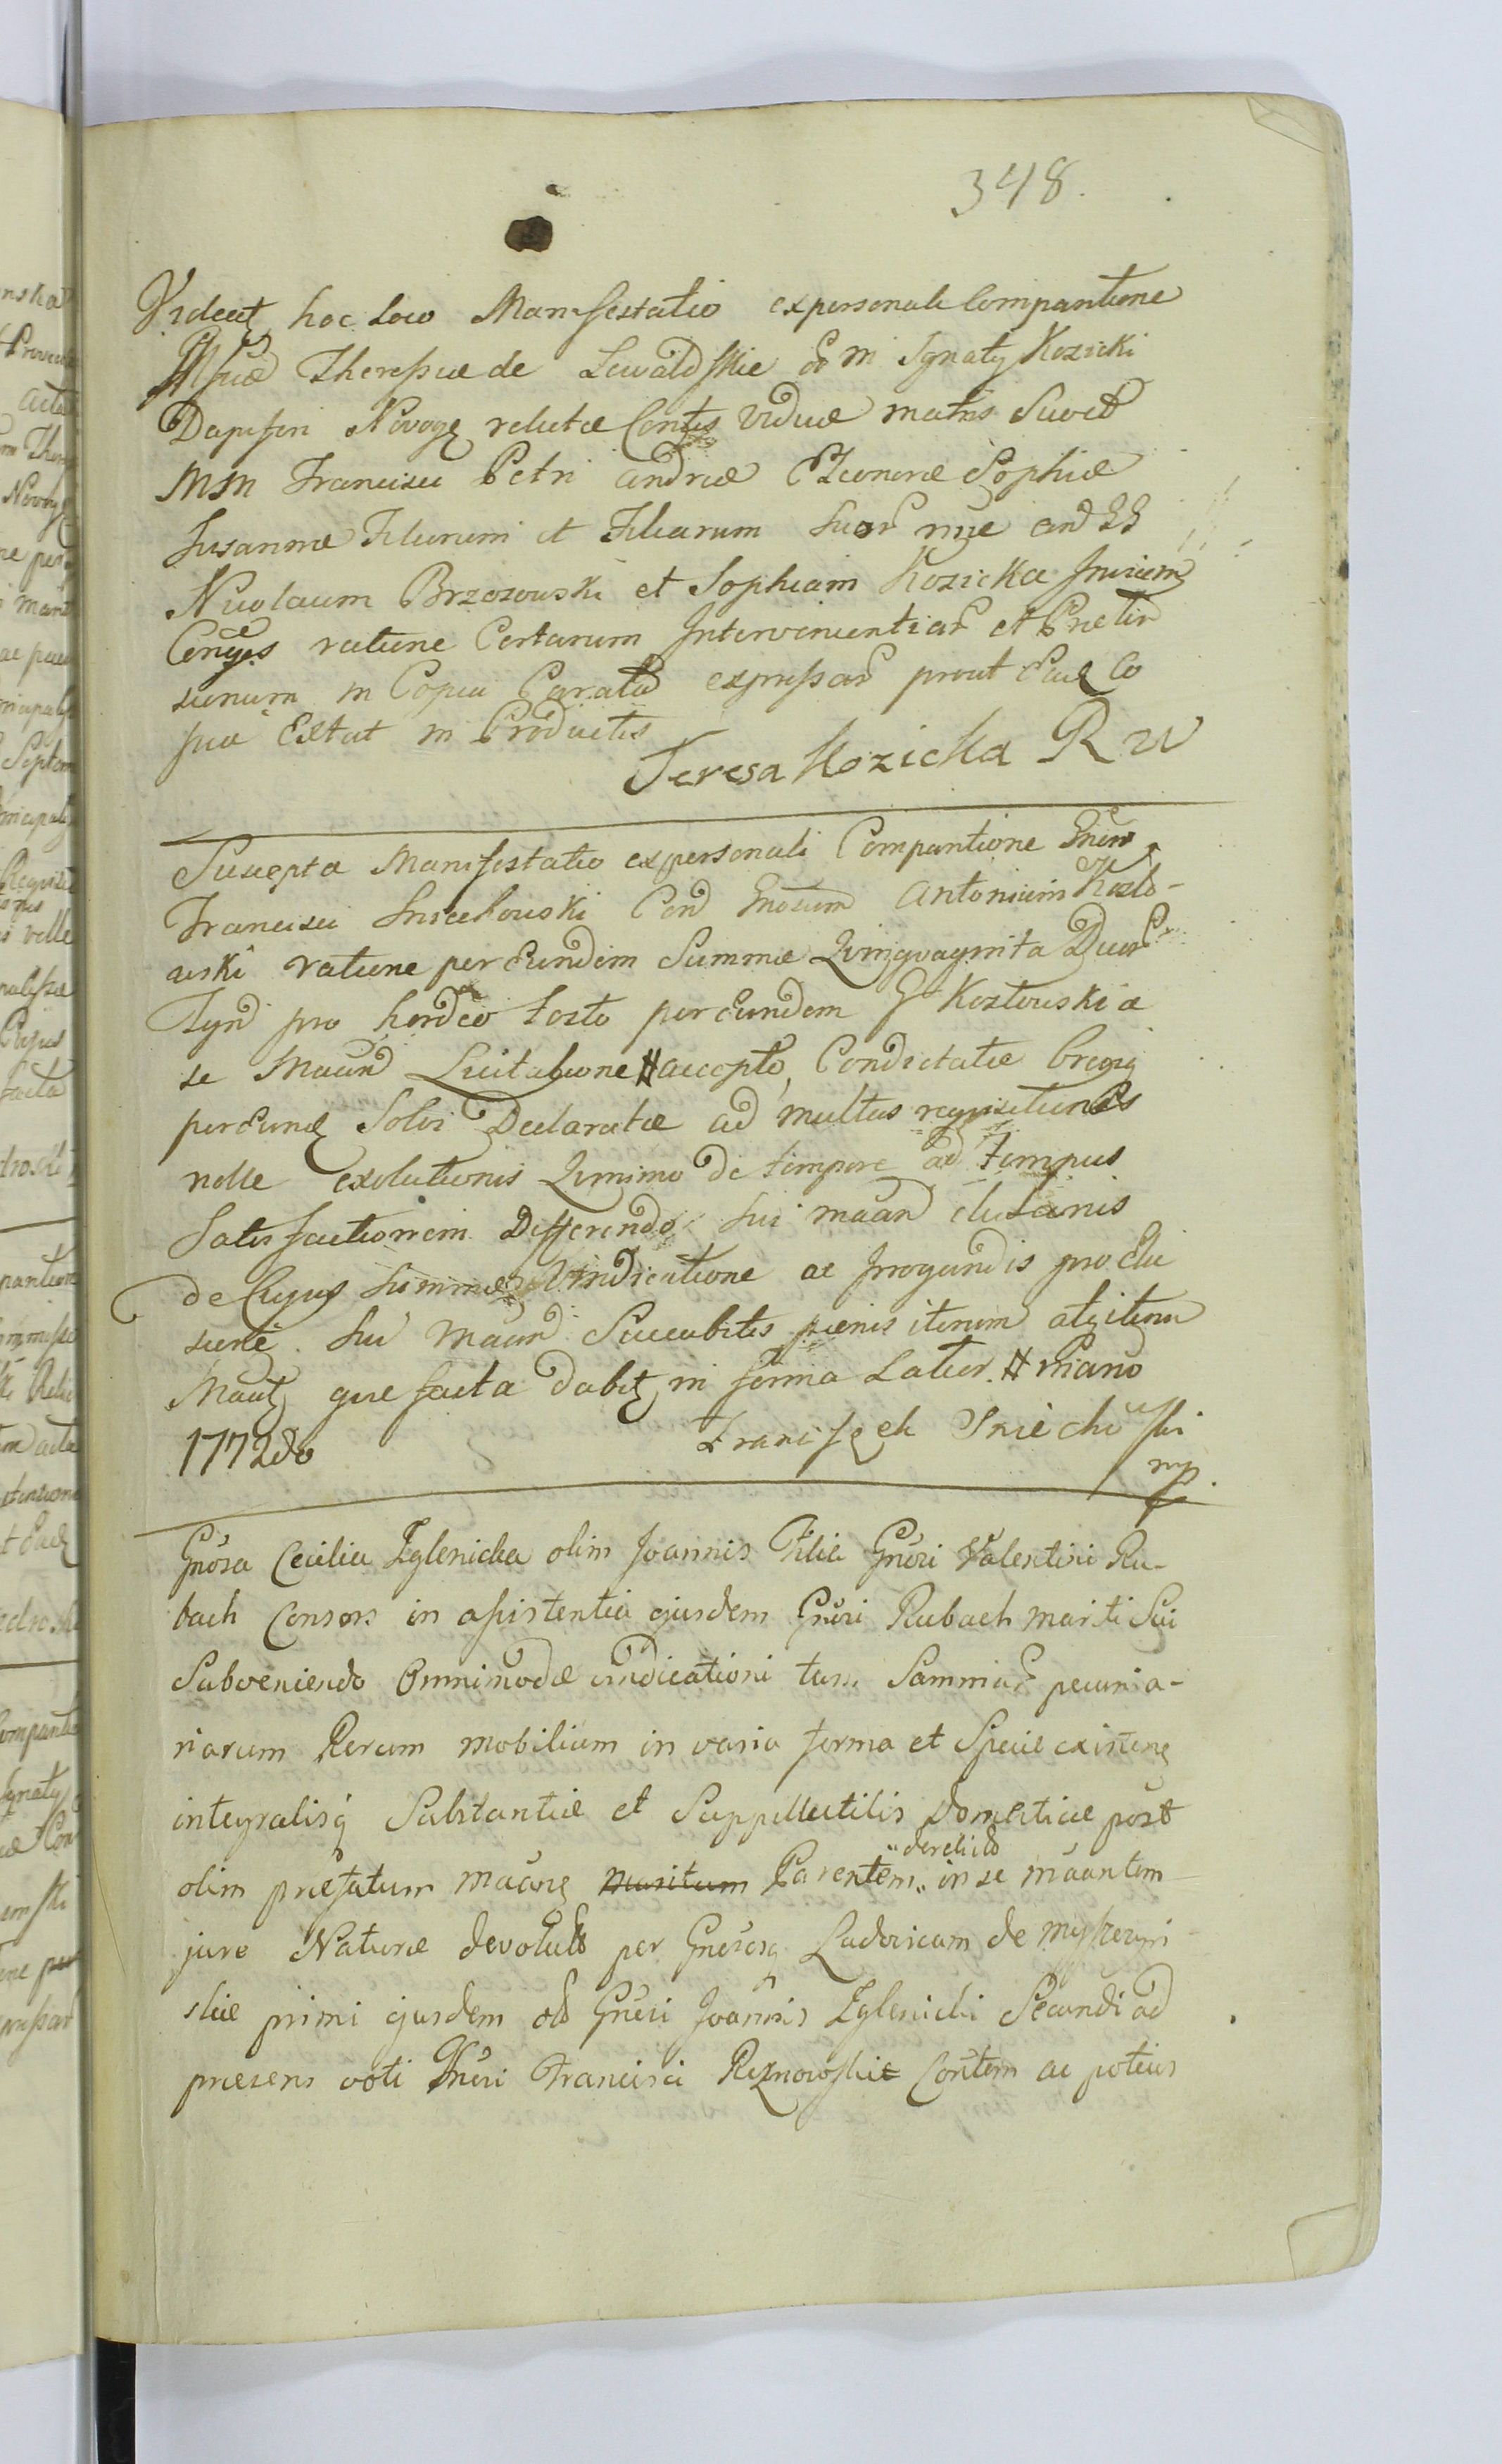 348.
Videat hoc loco Manifestatio expersonali Comparitione
Theressiae de Lewaldskie olim Ignatij Kozicki
Dapiferi Novog relictae Contis viduae matris Suo et
Francisci Petri andreae Eleonorae Sophiae
Susannae Filiorum et Filiarum Suor nne cond GG
Nicolaum Brzozowski et Sophiam Kozicka Juricam
Conges ratione Certarum Intervenientiar et Preten
sionum in Copia Parata expressar prout Ead Co
pia Extat in Productis
Teresa Kozicka R W
Suscepta Manifestatio expersonali Comparitione Gnera
Francisci Sniechowski Con Gnosum Antonium Kozlo-
wski ratione per Eundem Summae Quinquaginta Duor
Tynf pro hordeo tosto per Eundem G Kozlowski a
se Maan Licitatione # accepto, Condictatae brevi
per Eund Solvi Declaratae ad multas requisitiones
nolle exolutionis Quinimo de tempore ad tempus
Satisfactionem Differendo sui maan elusionis
de Cujus Summae Vindicatione ac Irrogandis pro Elu
sione sui maan Succubitis paenis iterum atq iterum
Maat que facta dabit in forma Latior. # Mano
1772do
Franciszek Sniechowski
mp.
Gnosa Cecilia Zglenicka olim Joannis Filia Gnosi Valentini Ru-
bach Consors in assistentia ejusdem Gnosi Rubach mariti Sui
Subveniendo Omnimodae vindicationi tum Summar pecunia-
riarum Rerum mobilium in varia forma et Specie existen
integralisq Substantiae et Suppellectilis domesticae post
olim praefatum maane maritum Parentem " derelict " in se maantem
jure Naturae devolut per Gnosq Ludovicam de Myszczyn
skie primi ejusdem ol Gnosi Joannis Zglenicki Secundi ad
praesens voti Gnosi Francisci Reznowskie Contem ac potius